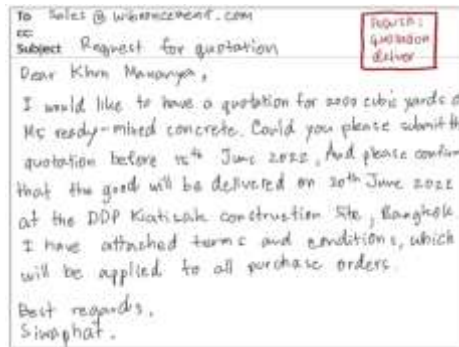 To Sales @
CC
Subject Request for quotation
quotation
deliver
Dear Khun Mananya,
I would like to have a quotation for 2000 cubic yards of
M5 ready-mixed concrete. Could you please submit the
quotation before 15th June 2022, And please confirm
that the good will be delivered on 30th June 2022
at the DDP Kiatisak construction site, Bangkok
I have attached terms and conditions, which
will be applied to all purchase orders.
Best regards,
Siwaphat.